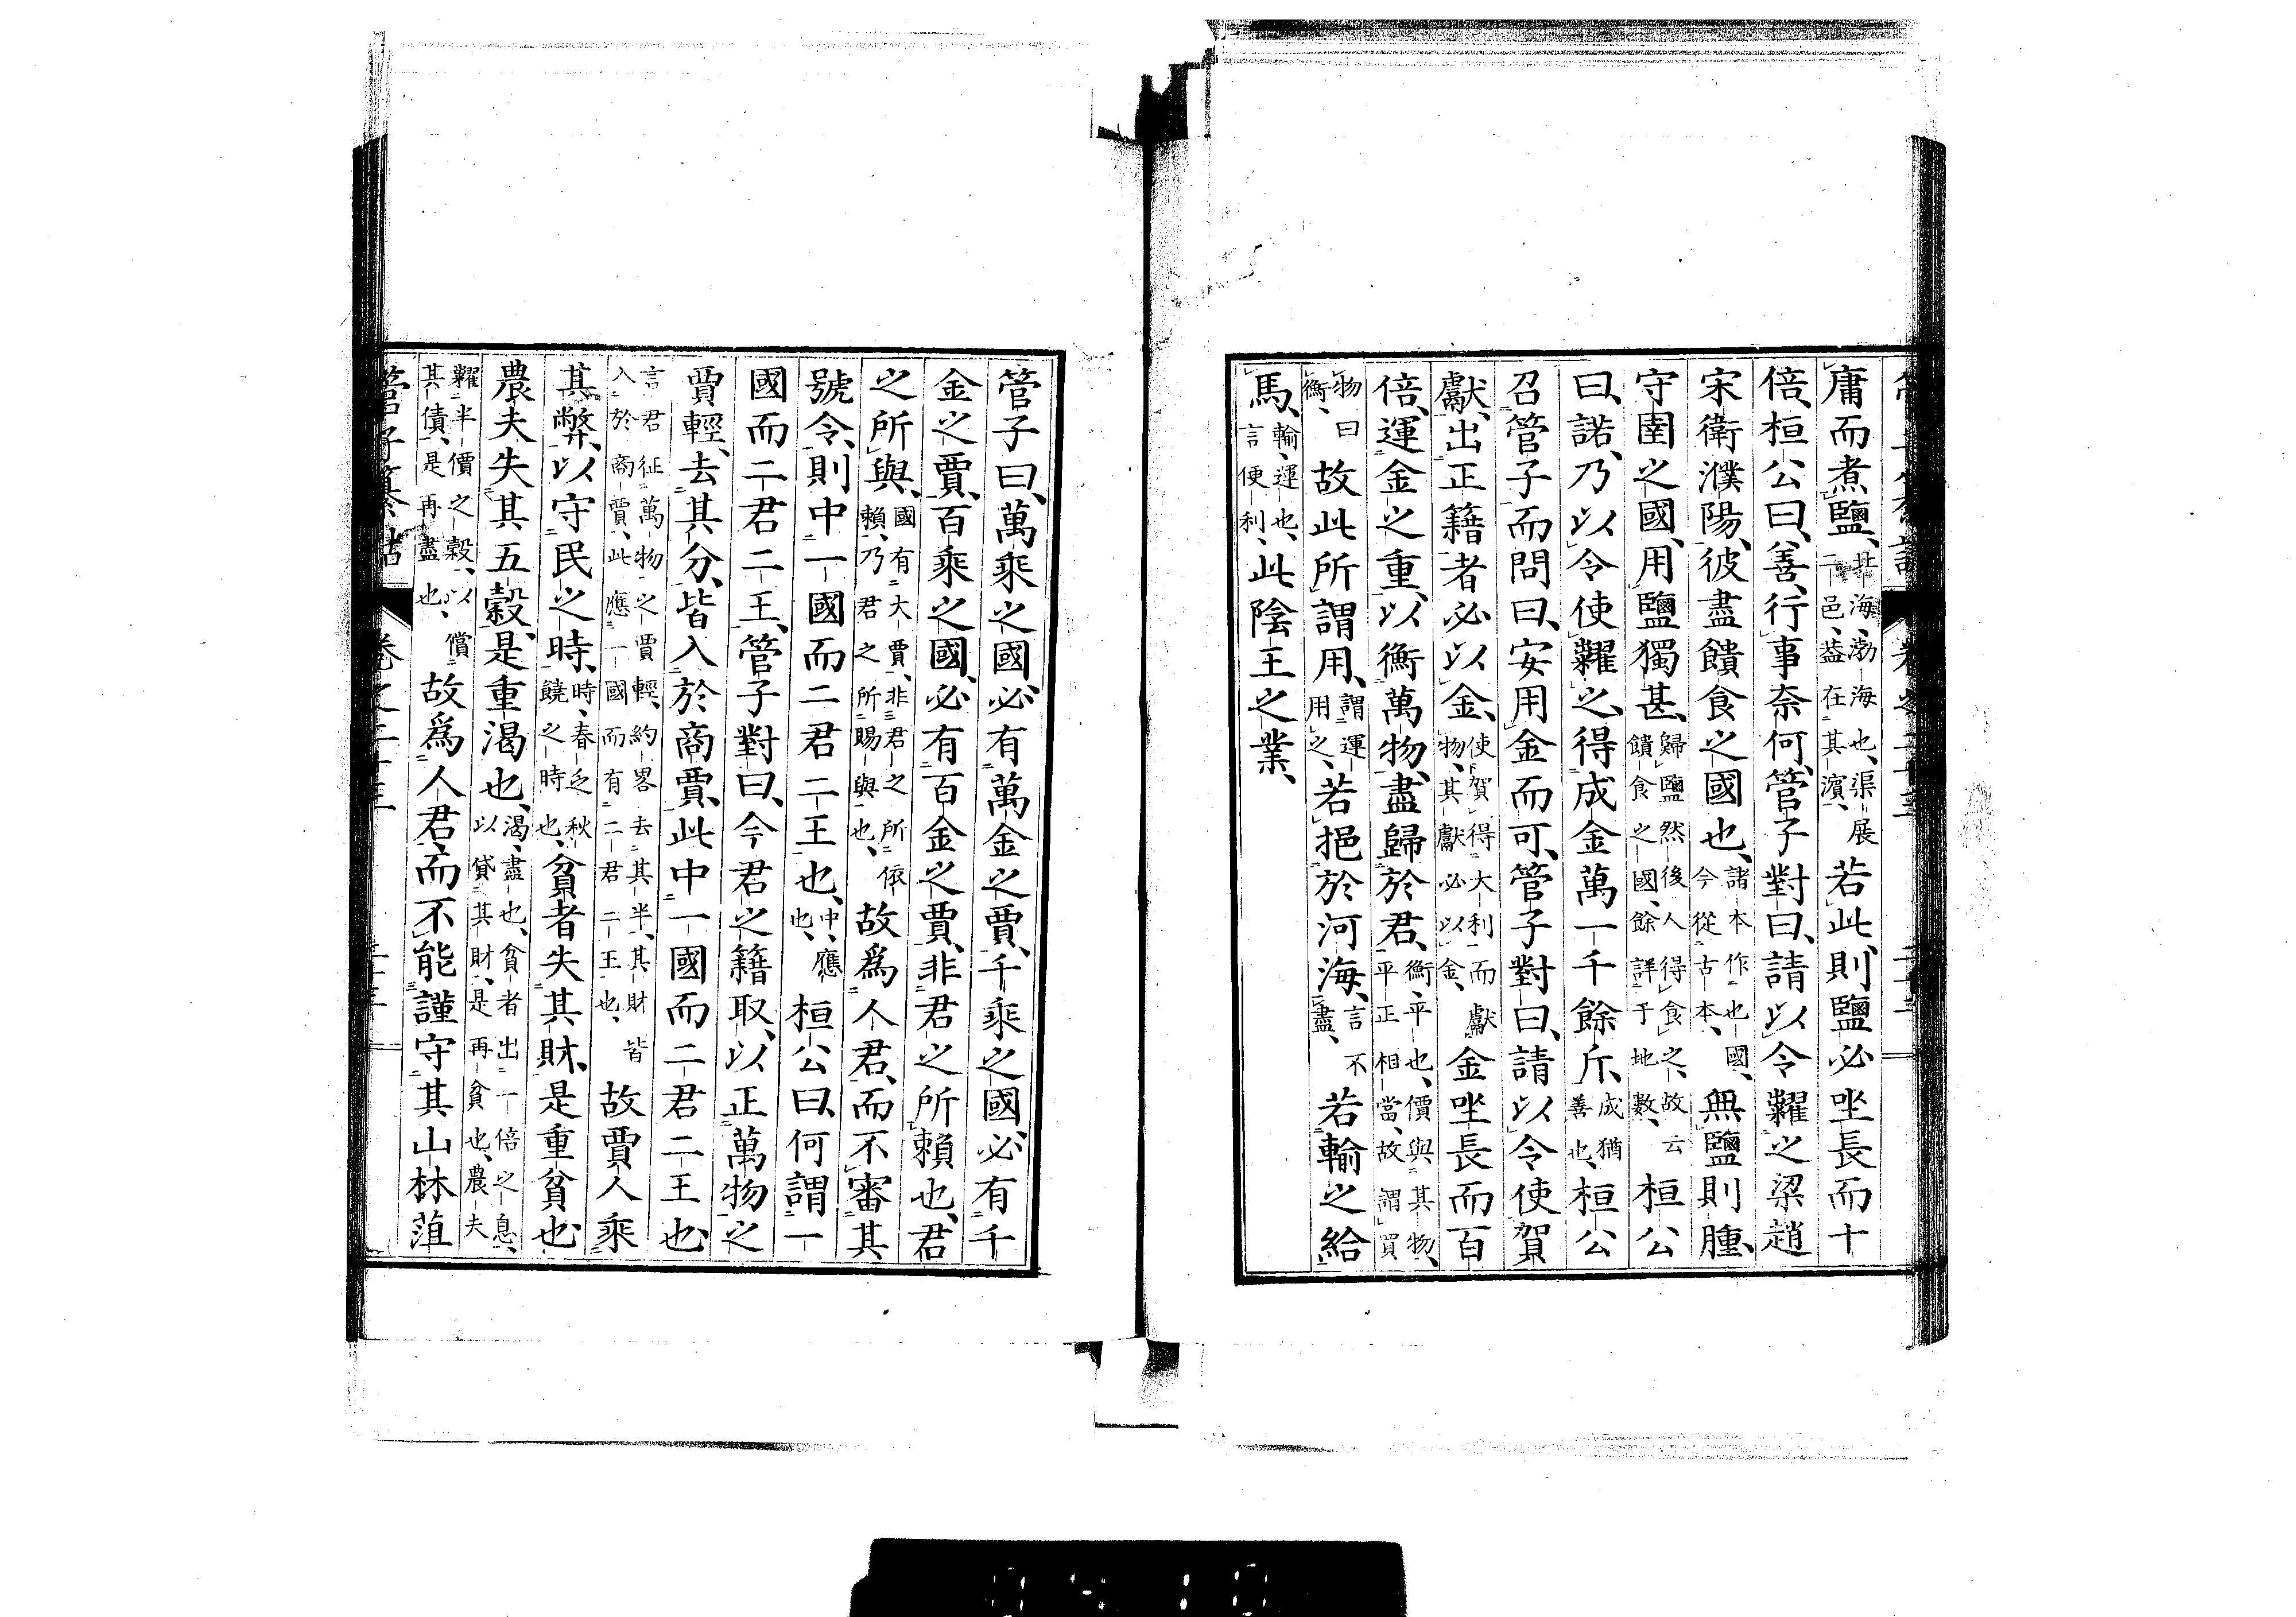 庸而煮鹽、北海、渤海也、渠展一邑、葢在其濱、若此、則鹽必坐長而十
倍、桓公曰、善、行事奈何、管子對曰、請以令糶之梁趙
宋衛濮陽、彼盡饋食之國也、諸本作也國、今從古本、無鹽則腫、
守圉之國、用鹽獨甚、歸鹽然後人得食之、故云饋食之國、餘詳于地數、桓公
曰、諾、乃以令使糶之、得成金萬一千餘斤、成猶善也、桓公
召管子而問曰、安用金而可、管子對曰、請以令使賀
獻、出正籍者必以金、使賀得大利而獻物、其獻必以金、獻金坐長而百
倍、運金之重、以衡萬物、盡歸於君、衡、平也、價與其物、平正相當、故謂買
物曰衡、故此所謂用、謂運用之、若挹於河海、言不盡、若輸之給
馬、輸、運也、言便利、此陰王之業、
管子曰、萬乘之國、必有萬金之賈、千乘之國、必有千
金之賈、百乘之國、必有百金之賈、非君之所賴也、君
之所與、國有大賈、非君之所依賴、乃君之所賜與也、故爲人君、而不審其
號令、則中一國而二君二王也、中、應也、桓公曰、何謂一
國而二君二王、管子對曰、今君之籍取、以正萬物之
賈輕、去其分、皆入於商賈、此中一國而二君二王也、
言君征萬物之賈輕、約畧去其半、其財皆入於商賈、此應一國而有二君二王也、故賈人乘
其弊、以守民之時、時、春乏秋饒之時也、貧者失其財、是重貧也、
農夫失其五穀、是重渴也、渴、盡也、貧者出一倍之息、以貸其財、是再貧也、農夫
糶半價之穀、以償其債、是再盡也、故爲人君、而不能謹守其山林菹
管子纂詁 卷之二十三